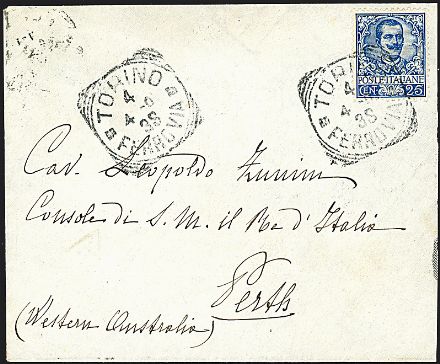 TORINO
FERROVIA
TORINO
FERROVIA
POSTE ITALIANE
CN. 25
Cav. Leopoldo Zunini
Console di S. M. il Re d'Italia
Perth
(Western Australia)